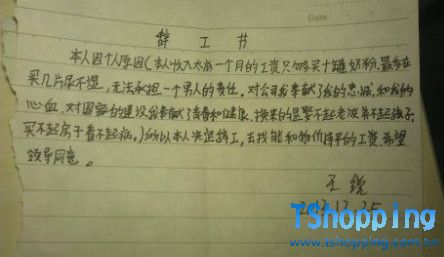 Date
辞工书
本人因个人原因(本人收入太低一个月的工资只够买十罐奶粉.最多在
买几片尿不湿,无法承担一个男人的责任,对公司我奉献了我的忠诚和我的
心血,对国家的建设我奉献了青春和健康.换来的是娶不起老婆养不起孩子,
买不起房子看不起病。)所以本人决定辞工,去找能和物价持平的工资.希望
领导同意。
王
12.25
TShopping
www.tshopping.com.tw